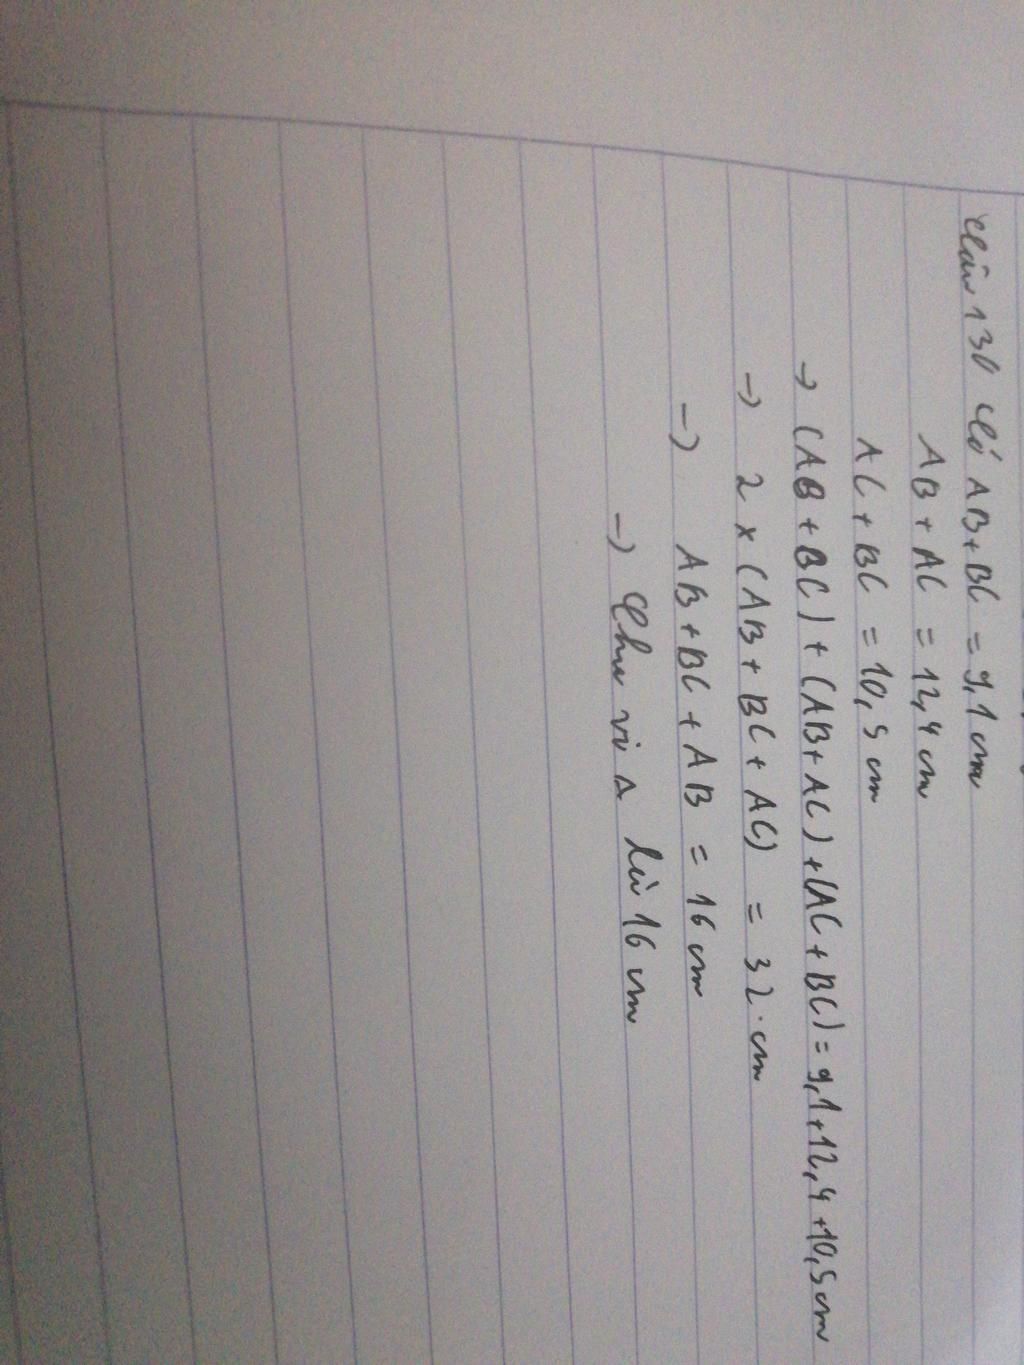 Câu 130 Có AB+BC = 9,1 cm
AB + AC = 12,4 cm
AC + BC = 10,5 cm
→ (AB + BC) + (AB + AC) + (AC + BC) = 9,1+12,4+10,5 cm
→ 2 x (AB + BC + AC) = 32 . cm
→ AB + BC + AB = 16 cm
→ Chu vi Δ là 16 cm